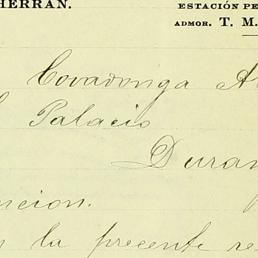 HERRAN.
ESTACIÓN PE
ADMOR. T. M.
Covadonga A
Palacio
Duran
ncion.
la presente re